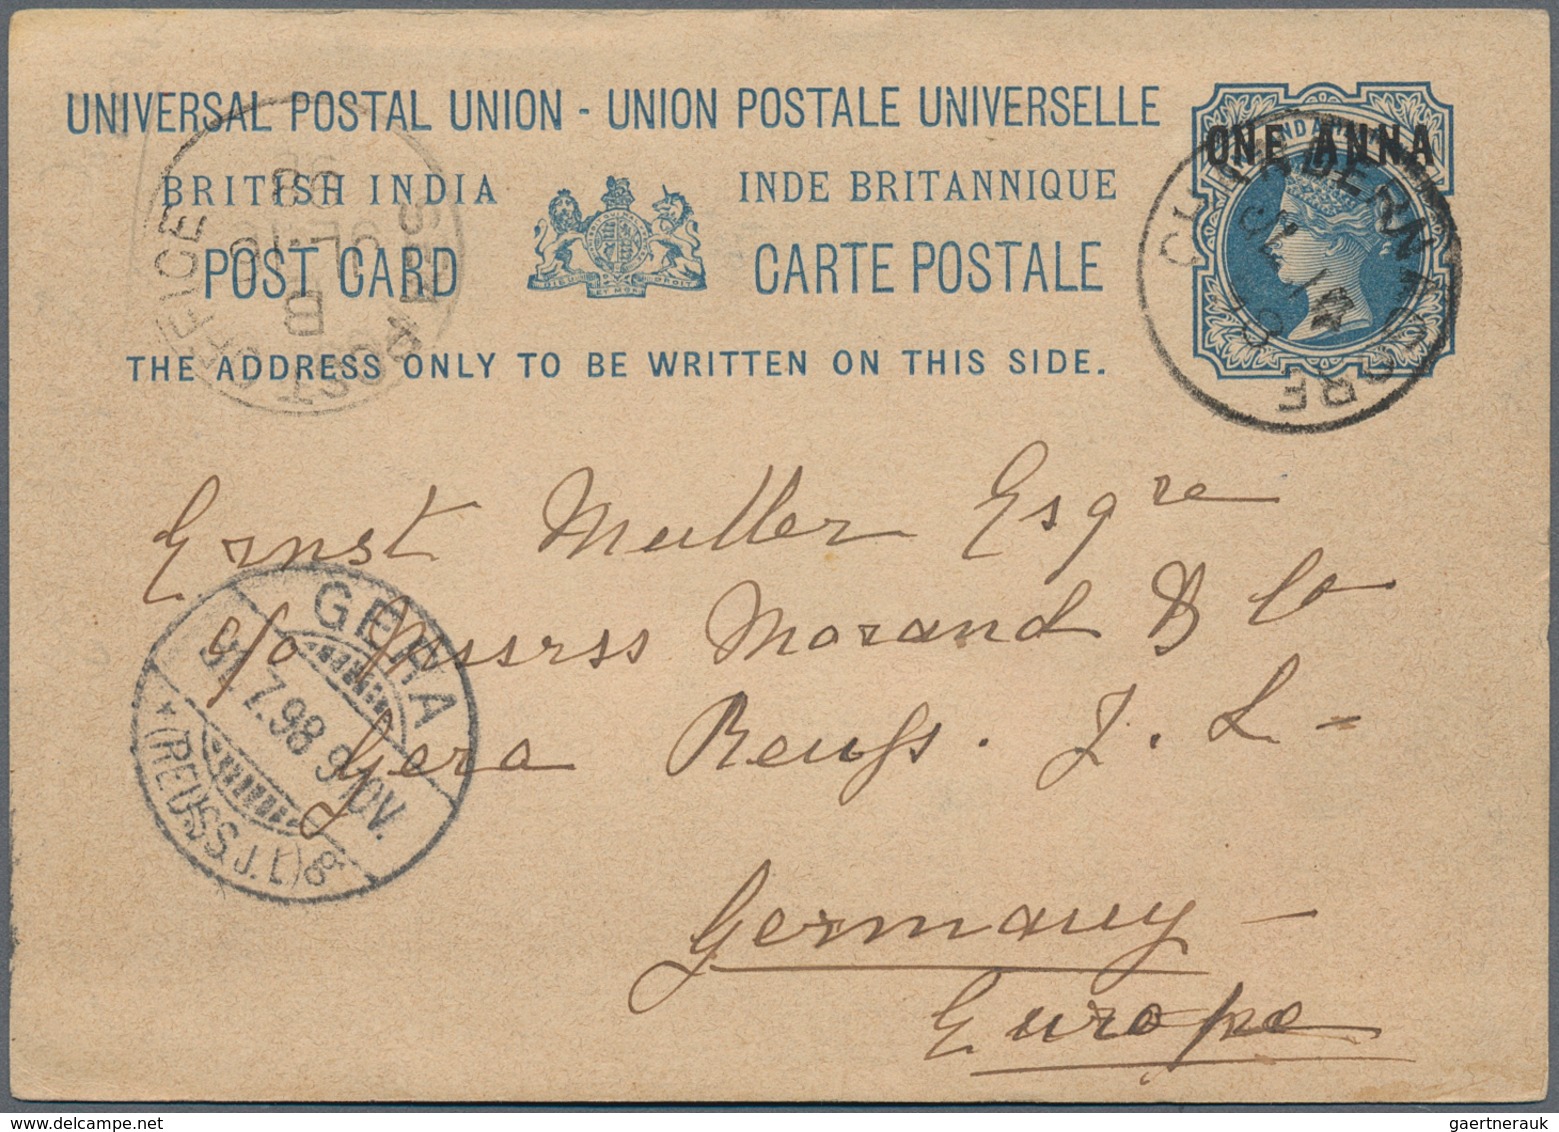 UNIVERSAL POSTAL UNION - UNION POSTALE UNIVERSELLE
BRITISH INDIA
INDE BRITANNIQUE
POST CARD
CARTE POSTALE
THE ADDRESS ONLY TO BE WRITTEN ON THIS SIDE.
ONE ANNA
CHANDERNAGORE
SEA POST OFFICE
B
98
Ernst Muller Esqre
c/o Messrss Morand & Co
Gera Reuss. J. L =
Germany -
Europe
GERA
7.98 9-10V.
* (REUSS J. L.)
gaertnerauk